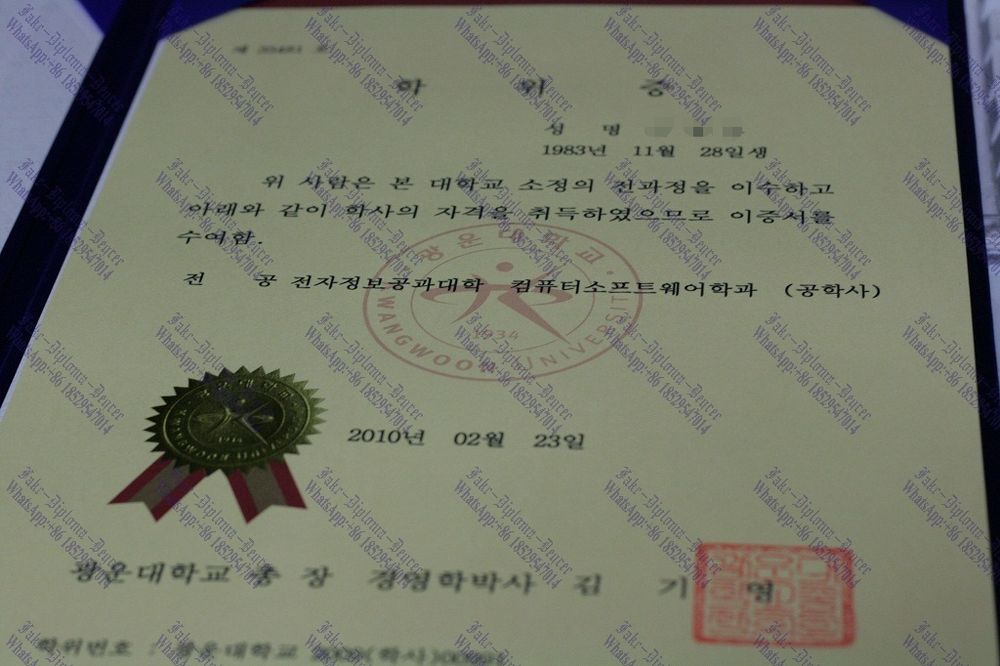 제 호
학 위 증
성 명
1983년 11월 28일생
위 사람은 본 대학교 소정의 전과정을 이수하고
아래와 같이 학사의 자격을 취득하였으므로 이증서를
수여함.
광운대학교
KWANGWOON UNIVERSITY
1934
전 공 전자정보공과대학 컴퓨터소프트웨어학과 (공학사)
2010년 02월 23일
광운대학교 총 장 경영학박사 김 기 영
학위번호 : 광운대학교
WhatsApp:+86 18529547014